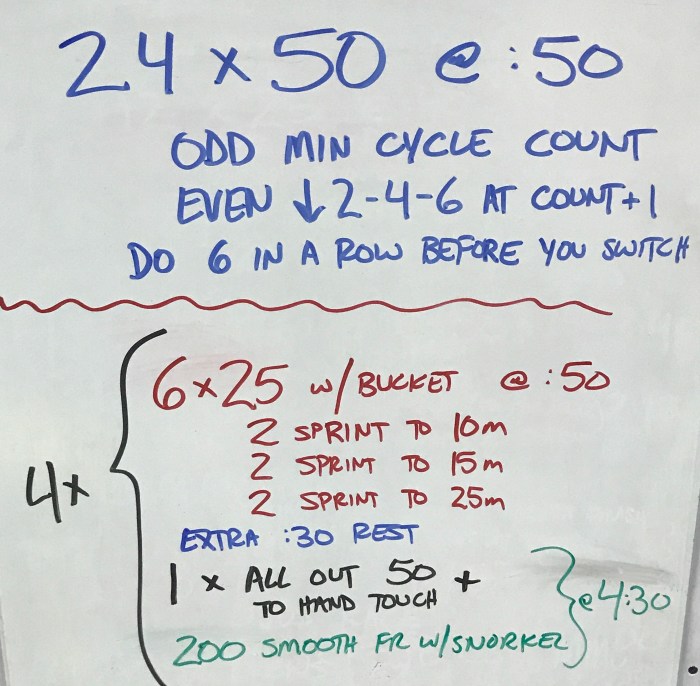 24 x 50 @ :50
ODD MIN CYCLE COUNT
EVEN ↓ 2-4-6 AT COUNT + 1
DO 6 IN A ROW BEFORE YOU SWITCH
4x
6x25 w/ BUCKET @ :50
2 SPRINT TO 10m
2 SPRINT TO 15m
2 SPRINT TO 25m
EXTRA :30 REST
1 x ALL OUT 50 +
TO HAND TOUCH
@4:30
200 SMOOTH FR W/SNORKEL